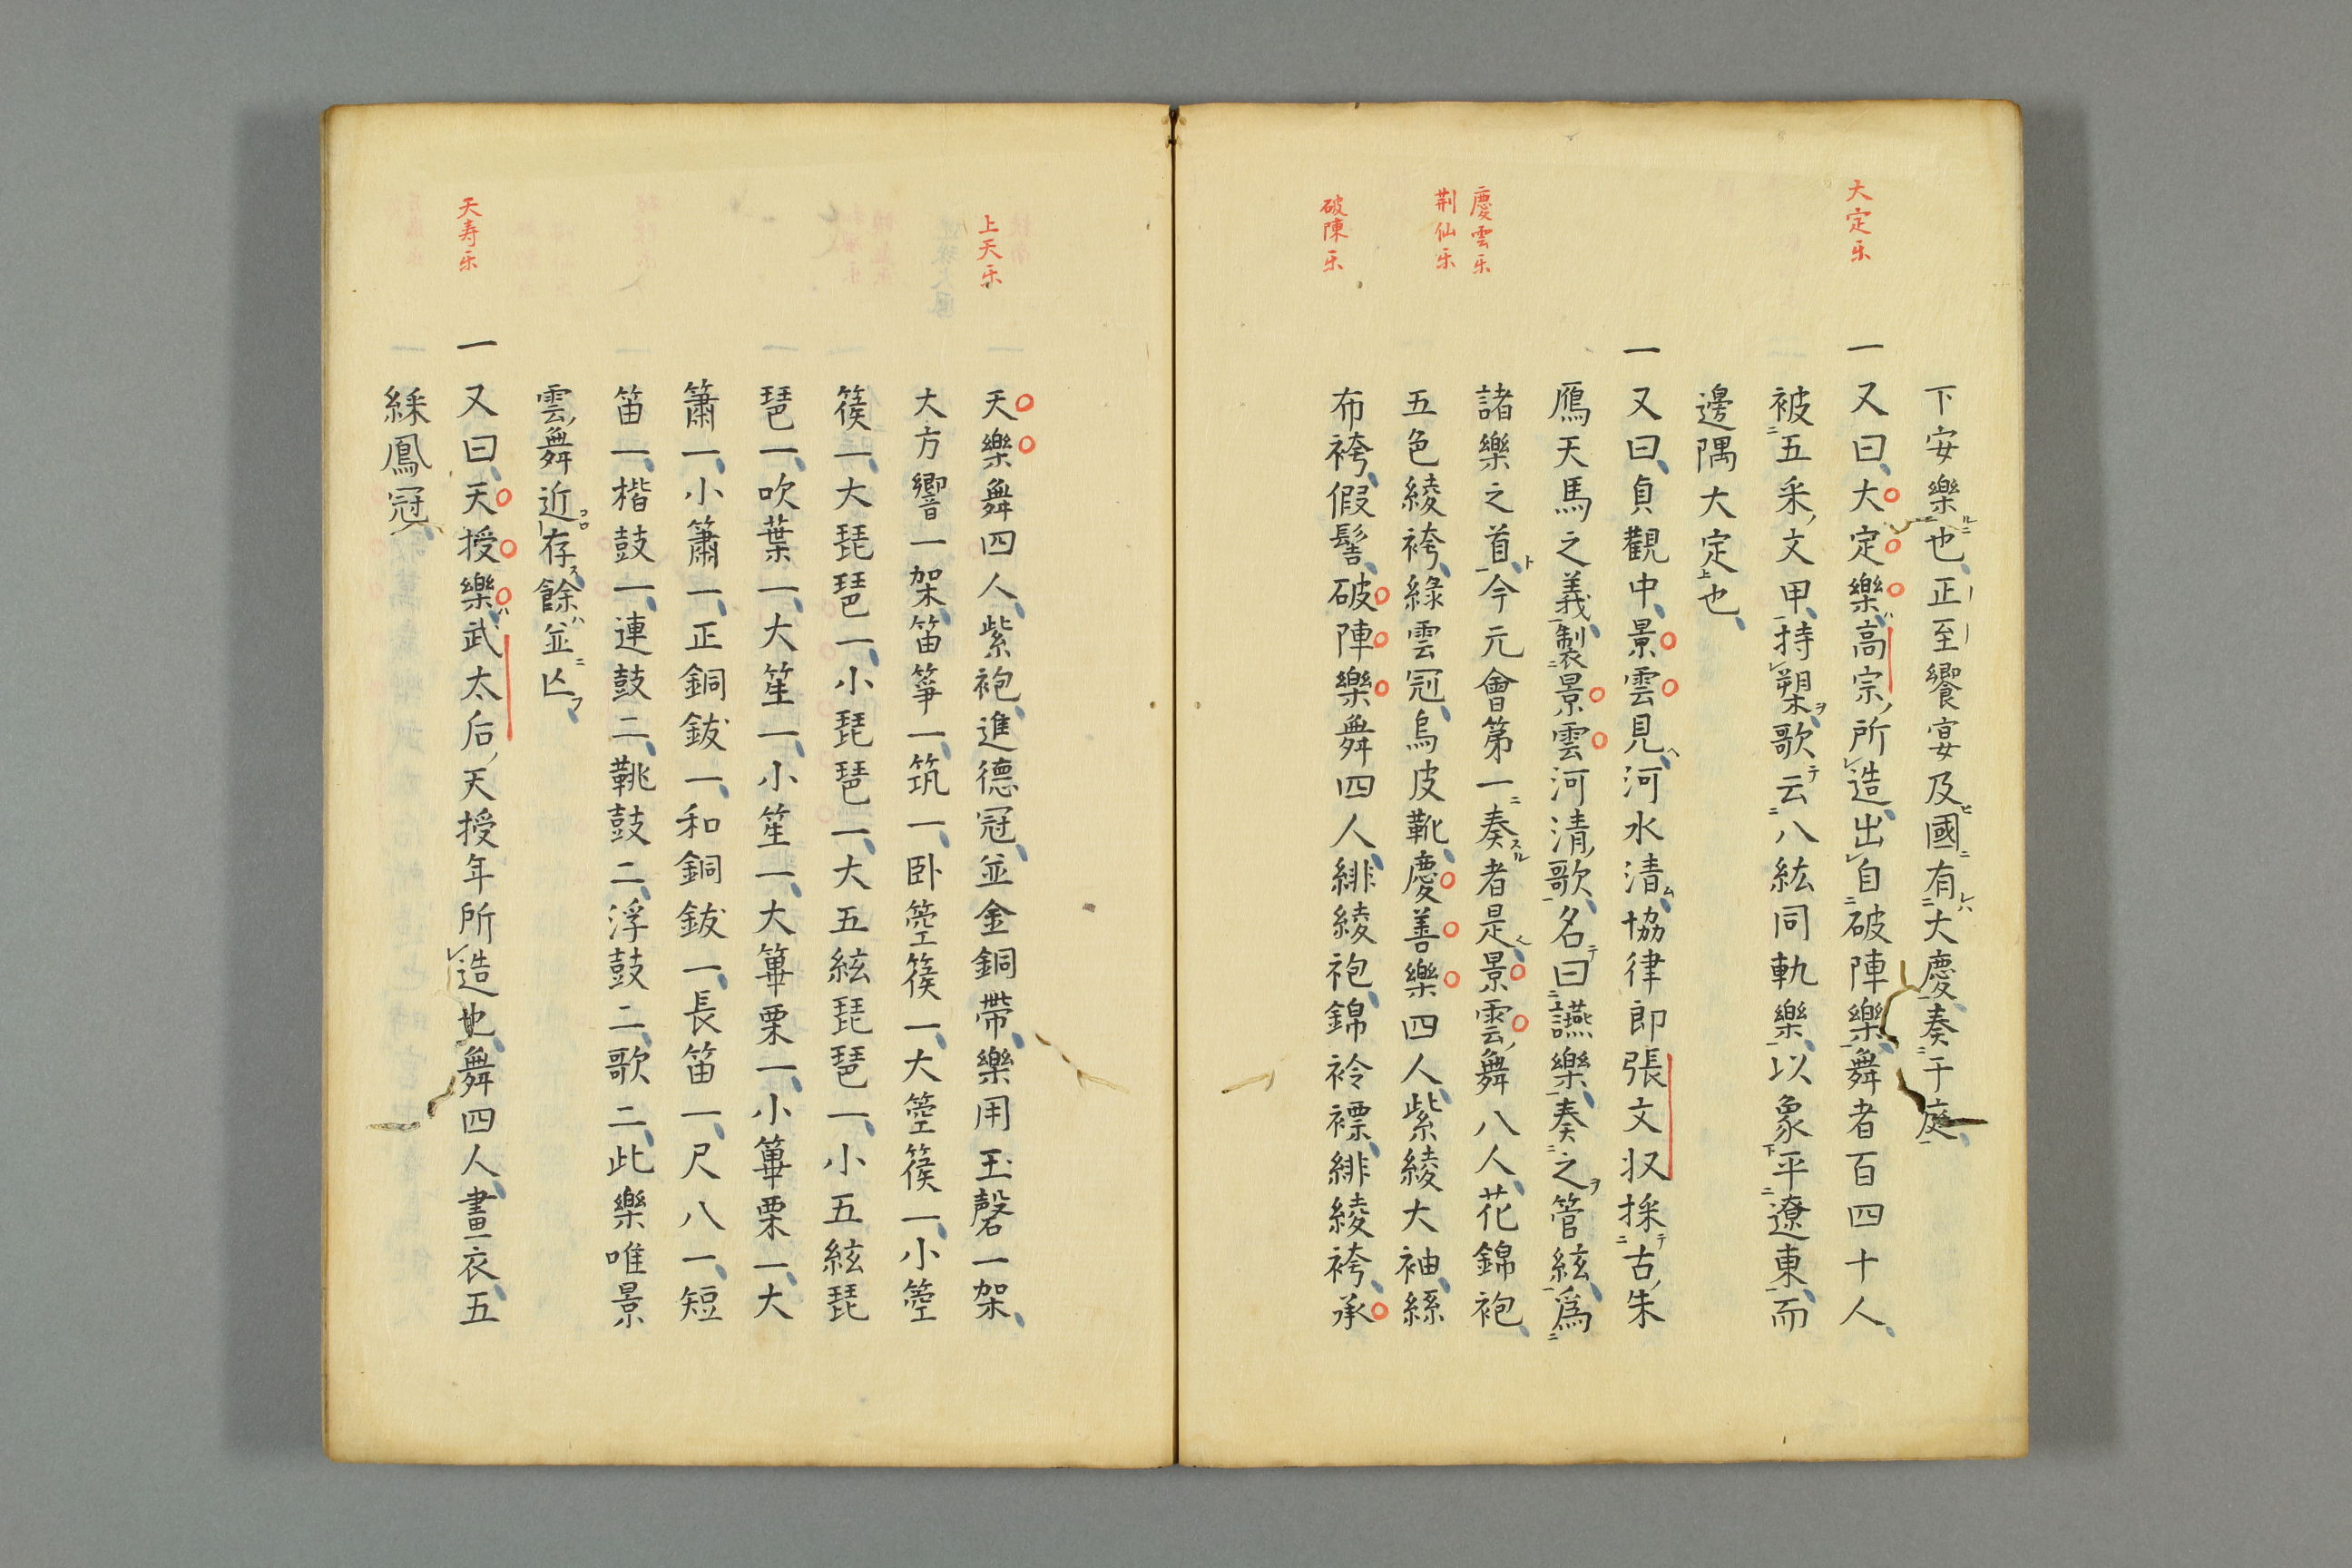 下安樂也正至饗宴及國有大慶奏于庭
大定乐
一又曰大定樂高宗所造出自破陣樂舞者百四十人
被五采文甲持槊歌云八紘同軌樂以象平遼東而
邊隅大定也
一又曰貞觀中景雲見河水清協律郎張文収採古朱
鴈天馬之義製景雲河清歌名曰讌樂奏之管絃爲
慶雲乐
諸樂之首今元會第一奏者是景雲舞八人花錦袍
荆仙乐
五色綾袴綠雲冠烏皮靴慶善樂四人紫綾大袖絲
破陳乐
布袴假髻破陣樂舞四人緋綾袍錦衿褾緋綾袴承
上天乐
天樂舞四人紫袍進德冠並金銅帶樂用玉磬一架
大方響一架笛箏一筑一卧箜篌一大箜篌一小箜
篌一大琵琶一小琵琶一大五絃琵琶一小五絃琵
琶一吹葉一大笙一小笙一大篳栗一小篳栗一大
簫一小簫一正銅鈸一和銅鈸一長笛一尺八一短
笛一楷鼓一連鼓二鞉鼓二浮鼓二歌二此樂唯景
雲舞近存餘並亾
天寿乐
一又曰天授樂武太后天授年所造也舞四人畫衣五
綵鳳冠